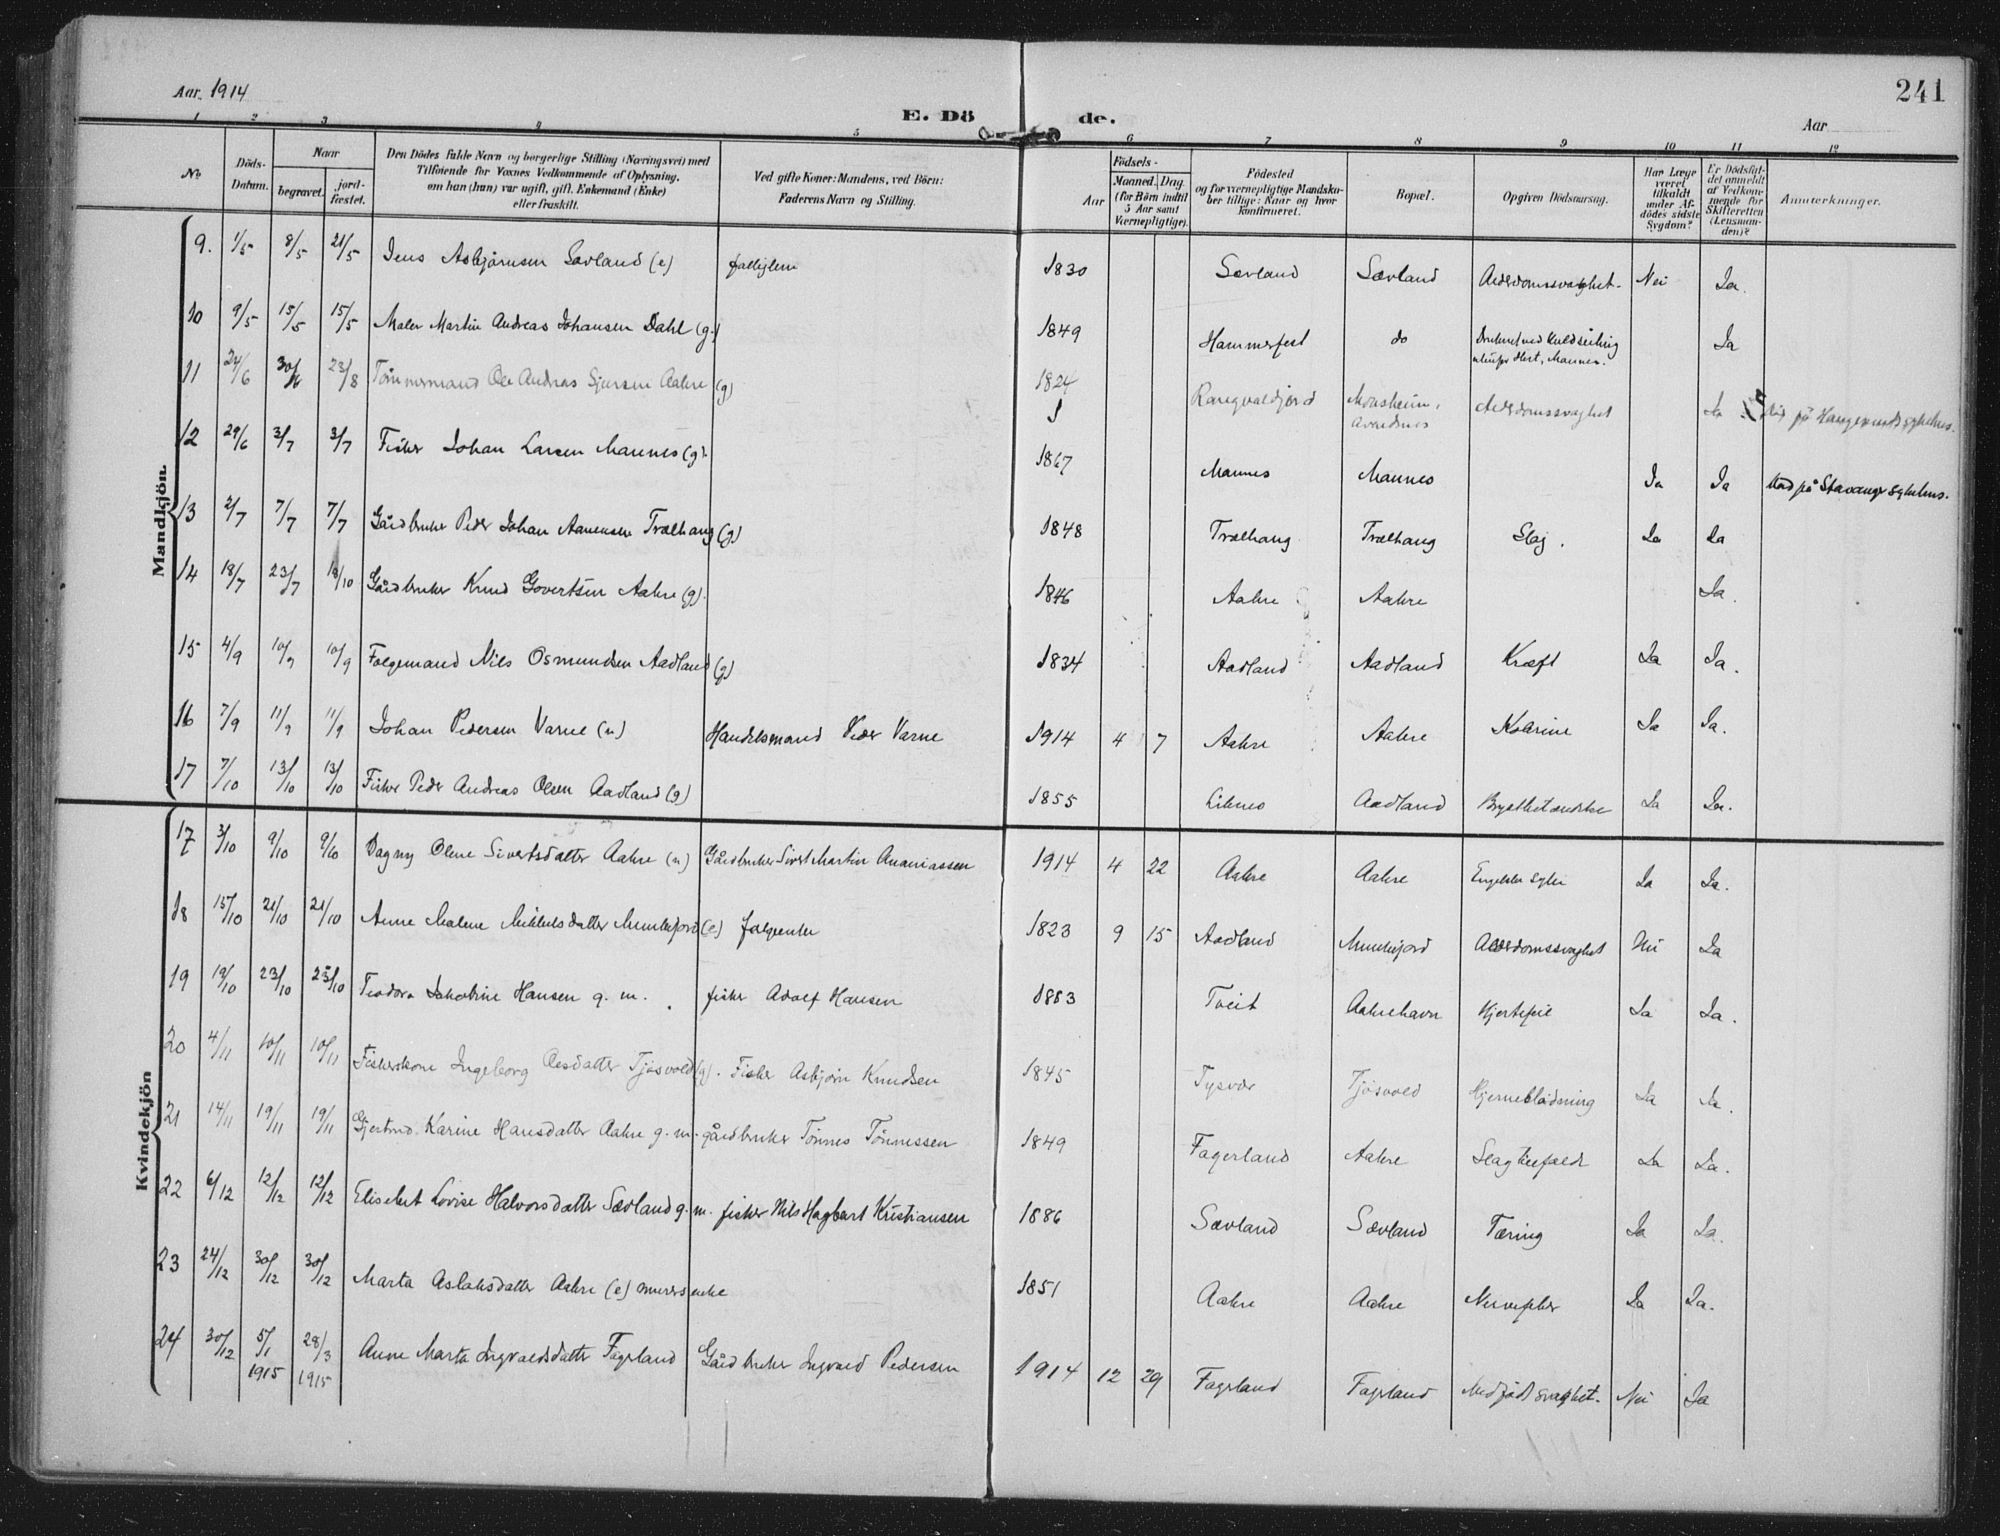 Aar 1914
241
E. Dö de.
Aar
1 2 3 4 5 6 7 8 9 10 11 12
No
Döds-Datum.
Naar
begravet.
jord-fæstet.
Den Dödes fulde Navn og borgerlige Stilling (Næringsvei) med
Tilföiende for Voxnes Vedkommende af Oplysning,
om han (hun) var ugift, gift, Enkemand (Enke)
eller fraskilt.
Ved gifte Koner: Mandens, ved Börn:
Faderens Navn og Stilling.
Födsels-
Aar
Maaned. Dag.
(for Börn indtil
5 Aar samt
Værnepligtige).
Födested
og for værnepligtige Mandska-
ber tillige: Naar og hvor
konfirmeret.
Bopæl.
Opgiven Dödsaarsag.
Har Læge
været
tilkaldt
under Af-
dödes sidste
Sygdom?
Er Dödsfal-
det anmeldt
af Vedkom-
mende for
Skifteretten
(Lensman-
den)?
Anmerkninger.
Mandkjön.
9. 1/5 8/5 21/5 Jens Asbjörnsen Sævland (e) 1830 Sævland Sævland Alderdomssvaghet. Nei Ja.
10 9/5 15/5 15/5 Maler Martin Andreas Johansen Dahl (g.) 1849 Hammerfest do Ja
11 24/6 23/8 Tömmermand Ole Andreas Aakre (g) 1824 Alderdomssvaghet Ja
12 29/6 3/7 3/7 Fisker Johan Larsen Mannes (g). 1867 Mannes Mannes Ja Ja Död på Stavanger sykehus.
13 2/7 7/7 7/7 Gårdbruker Peder Johan Trælhaug (g) 1848 Trælhaug Trælhaug Slag. Ja Ja
14 18/7 23/7 18/10 Gårdbruker Knud Govertsen Aakre (g). 1846 Aakre Aakre Ja.
15 4/9 10/9 10/9 Folgemand Nils Osmundsen Aadland (g) 1834 Aadland Aadland Kræft Ja Ja.
16 7/9 11/9 11/9 Johan Pedersen Varne (u) Handelsmand Peder Varne 1914 4 7 Aakre Aakre Ja Ja.
17 7/10 13/10 13/10 Fisker Peder Andreas Olsen Aadland (g) 1855 Aadland Ja Ja.
Kvindekjön
17 3/10 9/10 9/10 Dagny Oline Sivertsdatter Aakre (u) Gårdbruker Sivert Martin Ananiassen 1914 4 22 Aakre Aakre Ja Ja.
18 15/10 21/10 21/10 Anne Malene Mikkelsdatter Munkejord (e) folgeenke 1823 9 15 Aadland Munkejord Alderdomssvaghet Nei Ja
19 19/10 23/10 23/10 Teodora Jakobine Hansen g. m. fisker Adolf Hansen 1883 Tveit Aakrehavn Hjertefeil Ja Ja.
20 4/11 10/11 10/11 Fiskerkone Ingeborg Olesdatter Tjösvold (g). Fisker Asbjörn Knudsen 1845 Tysvær Tjösvold Hjerneblödning Ja Ja.
21 14/11 19/11 19/11 Gjertrud Karine Hansdatter Aakre g. m. gårdbruker Tönnes Tönnessen 1849 Fagerland Aakre Slagtilfælde Ja Ja.
22 6/12 12/12 12/12 Elisebet Lovise Halvorsdatter Sævland g. m. fisker Nils Hagbart Kristiansen 1886 Sævland Sævland Tæring Ja Ja.
23 24/12 30/12 30/12 Marta Aslaksdatter Aakre (e) murersenke 1851 Aakre Aakre Ja Ja.
24 30/12 5/1 1915 28/3 1915 Anne Marta Ingvaldsdatter Fagerland Gårdbruker Ingvald Pedersen 1914 12 29 Fagerland Fagerland Medfödt svaghet. Nei Ja